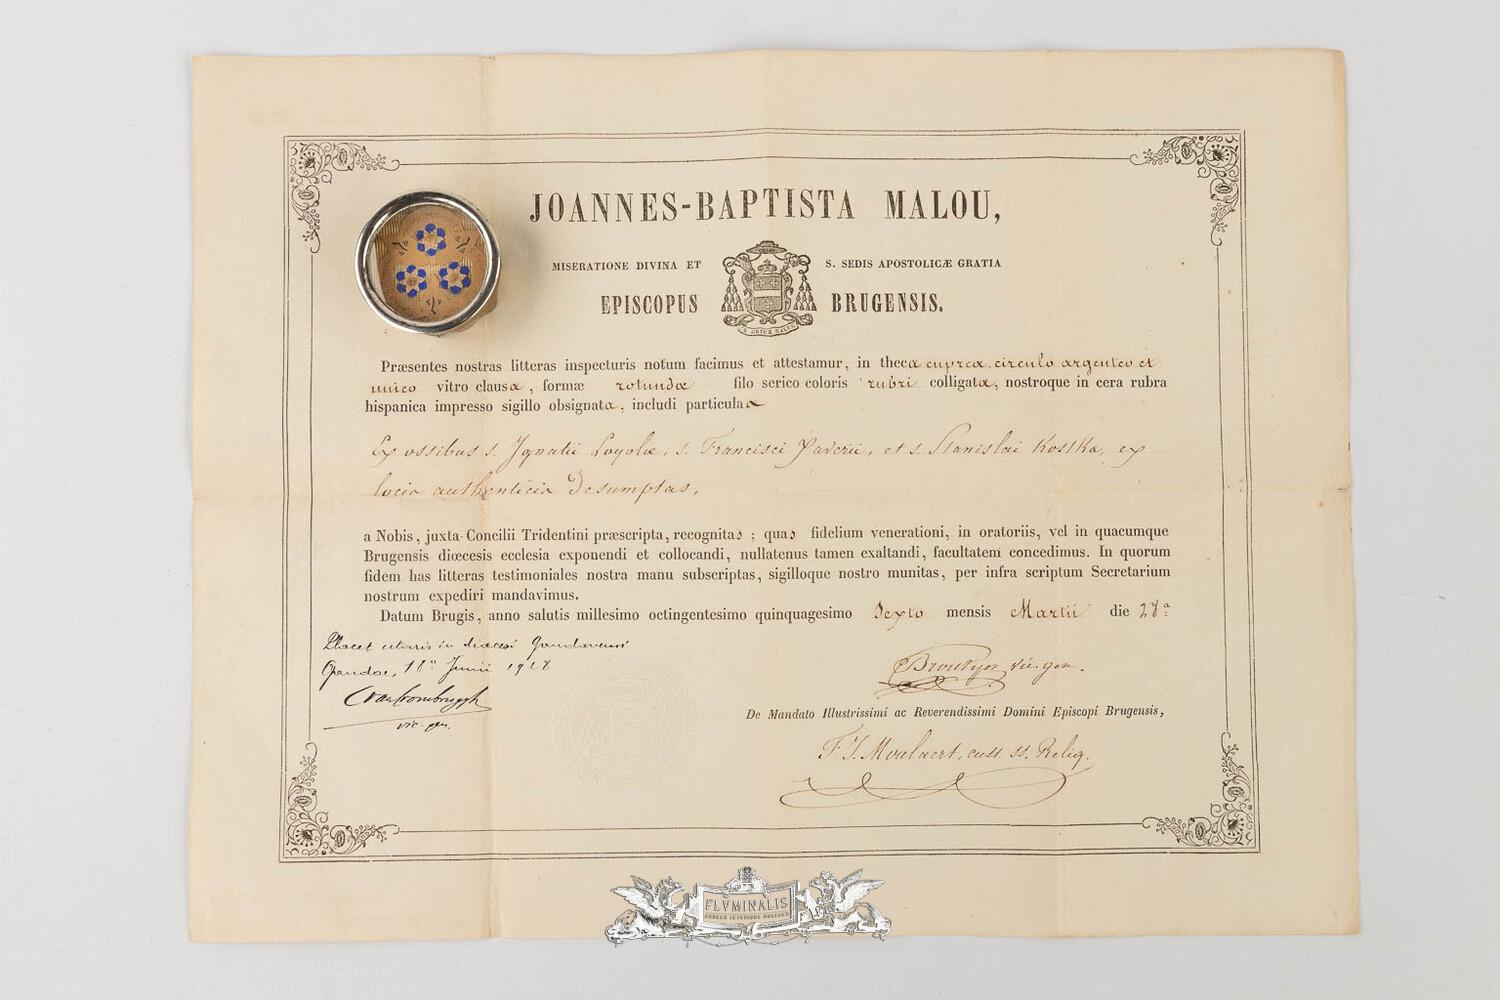 JOANNES-BAPTISTA MALOU,
MISERATIONE DIVINA ET S. SEDIS APOSTOLICÆ GRATIA
EPISCOPUS BRUGENSIS.
Præsentes nostras litteras inspecturis notum facimus et attestamur, in theca cuprea, circulo argenteo et
unico vitro clausa, formæ rotundæ filo serico coloris rubri colligata, nostroque in cera rubra
hispanica impresso sigillo obsignata, includi particulas
Ex ossibus s. Ignatii Loyolæ, s. Francisci Xaverii, et s. Stanislai Kostka, ex
locis authenticis desumptas,
a Nobis, juxta Concilii Tridentini præscripta, recognitas; quas fidelium venerationi, in oratoriis, vel in quacumque
Brugensis diœcesis ecclesia exponendi et collocandi, nullatenus tamen exaltandi, facultatem concedimus. In quorum
fidem has litteras testimoniales nostra manu subscriptas, sigilloque nostro munitas, per infra scriptum Secretarium
nostrum expediri mandavimus.
Datum Brugis, anno salutis millesimo octingentesimo quinquagesimo Sexto mensis Martii die 28ª
Placet in diœcesi Gandavensi
Gandae, Junii
vic. gen.
vic. gen.
De Mandato Illustrissimi ac Reverendissimi Domini Episcopi Brugensis,
F. J. Moulaert, cust. ss. Reliq.
FLVMINALIS